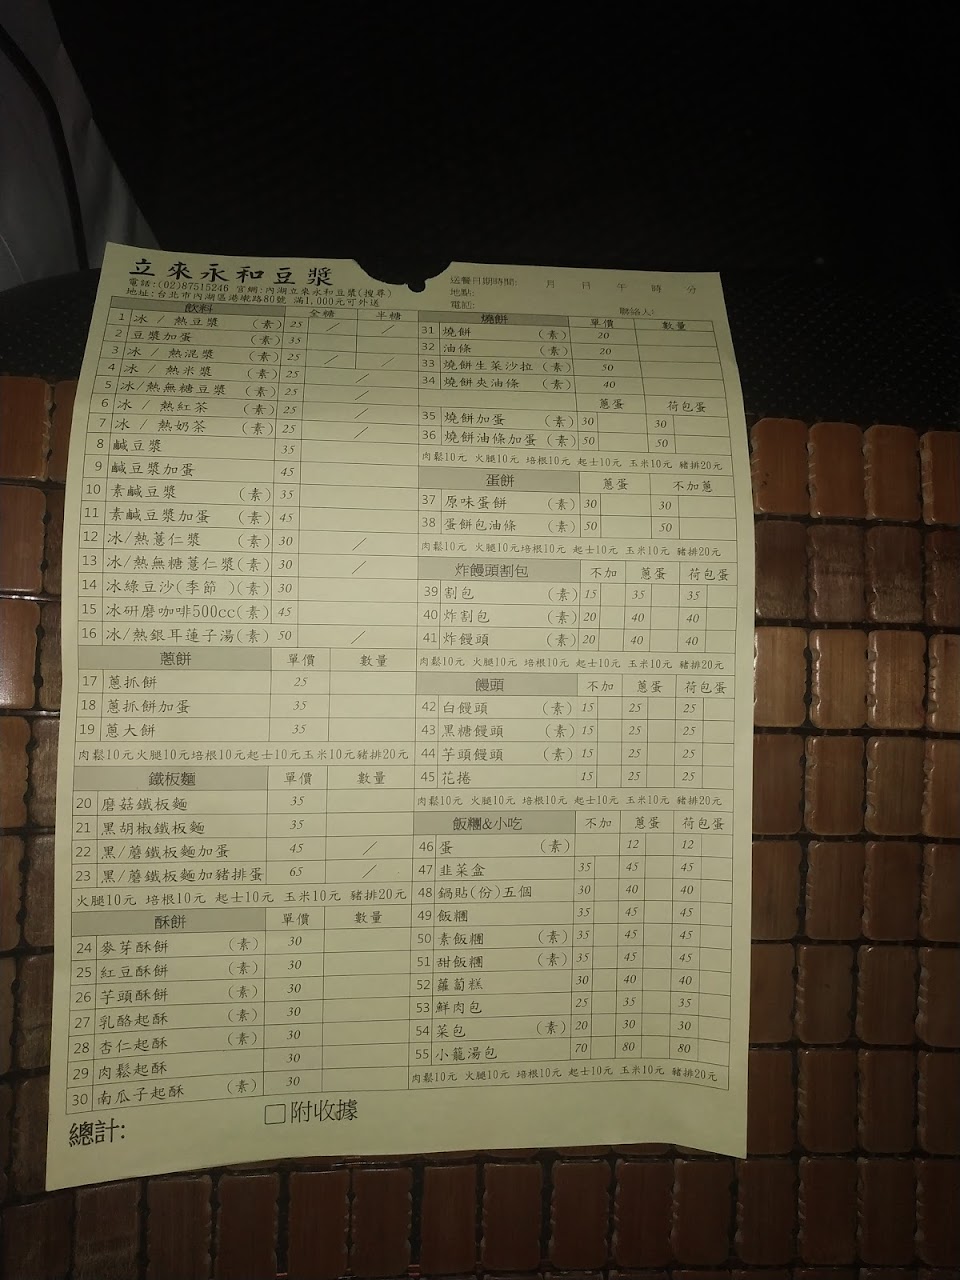 立來永和豆漿
電話:(02)87515246 官網:內湖立來永和豆漿(搜尋)
地址:台北市內湖區港墘路80號 滿1,000元可外送
送餐日期時間: 月 日 午 時 分
地點:
電話: 聯絡人:
飲料 全糖 半糖
1 冰/熱豆漿 (素) 25 / /
2 豆漿加蛋 (素) 35
3 冰/熱混漿 (素) 25 / /
4 冰/熱米漿 (素) 25 /
5 冰/熱無糖豆漿 (素) 25
6 冰/熱紅茶 (素) 25 /
7 冰/熱奶茶 (素) 25 /
8 鹹豆漿 35
9 鹹豆漿加蛋 45
10 素鹹豆漿 (素) 35
11 素鹹豆漿加蛋 (素) 45
12 冰/熱薏仁漿 (素) 30 /
13 冰/熱無糖薏仁漿(素) 30 /
14 冰綠豆沙(季節 )(素) 30
15 冰研磨咖啡500cc(素) 45
16 冰/熱銀耳蓮子湯(素) 50 /
蔥餅 單價 數量
17 蔥抓餅 25
18 蔥抓餅加蛋 35
19 蔥大餅 35
肉鬆10元火腿10元培根10元起士10元玉米10元豬排20元
鐵板麵 單價 數量
20 磨菇鐵板麵 35
21 黑胡椒鐵板麵 35
22 黑/蘑鐵板麵加蛋 45 /
23 黑/蘑鐵板麵加豬排蛋 65 /
火腿10元 培根10元 起士10元 玉米10元 豬排20元
酥餅 單價 數量
24 麥芽酥餅 (素) 30
25 紅豆酥餅 (素) 30
26 芋頭酥餅 (素) 30
27 乳酪起酥 (素) 30
28 杏仁起酥 (素) 30
29 肉鬆起酥 30
30 南瓜子起酥 (素) 30
總計: □附收據
燒餅 單價 數量
31 燒餅 (素) 20
32 油條 (素) 20
33 燒餅生菜沙拉 (素) 50
34 燒餅夾油條 (素) 40
蔥蛋 荷包蛋
35 燒餅加蛋 (素) 30 30
36 燒餅油條加蛋 (素) 50 50
肉鬆10元 火腿10元 培根10元 起士10元 玉米10元 豬排20元
蛋餅 蔥蛋 不加蔥
37 原味蛋餅 (素) 30 30
38 蛋餅包油條 (素) 50 50
肉鬆10元 火腿10元培根10元 起士10元 玉米10元 豬排20元
炸饅頭割包 不加 蔥蛋 荷包蛋
39 割包 (素) 15 35 35
40 炸割包 (素) 20 40 40
41 炸饅頭 (素) 20 40 40
肉鬆10元 火腿10元 培根10元 起士10元 玉米10元 豬排20元
饅頭 不加 蔥蛋 荷包蛋
42 白饅頭 (素) 15 25 25
43 黑糖饅頭 (素) 15 25 25
44 芋頭饅頭 (素) 15 25 25
45 花捲 15 25 25
肉鬆10元 火腿10元 培根10元 起士10元 玉米10元 豬排20元
飯糰&小吃 不加 蔥蛋 荷包蛋
46 蛋 (素) 12 12
47 韭菜盒 35 45 45
48 鍋貼(份)五個 30 40 40
49 飯糰 35 45 45
50 素飯糰 (素) 35 45 45
51 甜飯糰 (素) 35 45 45
52 蘿蔔糕 30 40 40
53 鮮肉包 25 35 35
54 菜包 (素) 20 30 30
55 小籠湯包 70 80 80
肉鬆10元 火腿10元 培根10元 起士10元 玉米10元 豬排20元